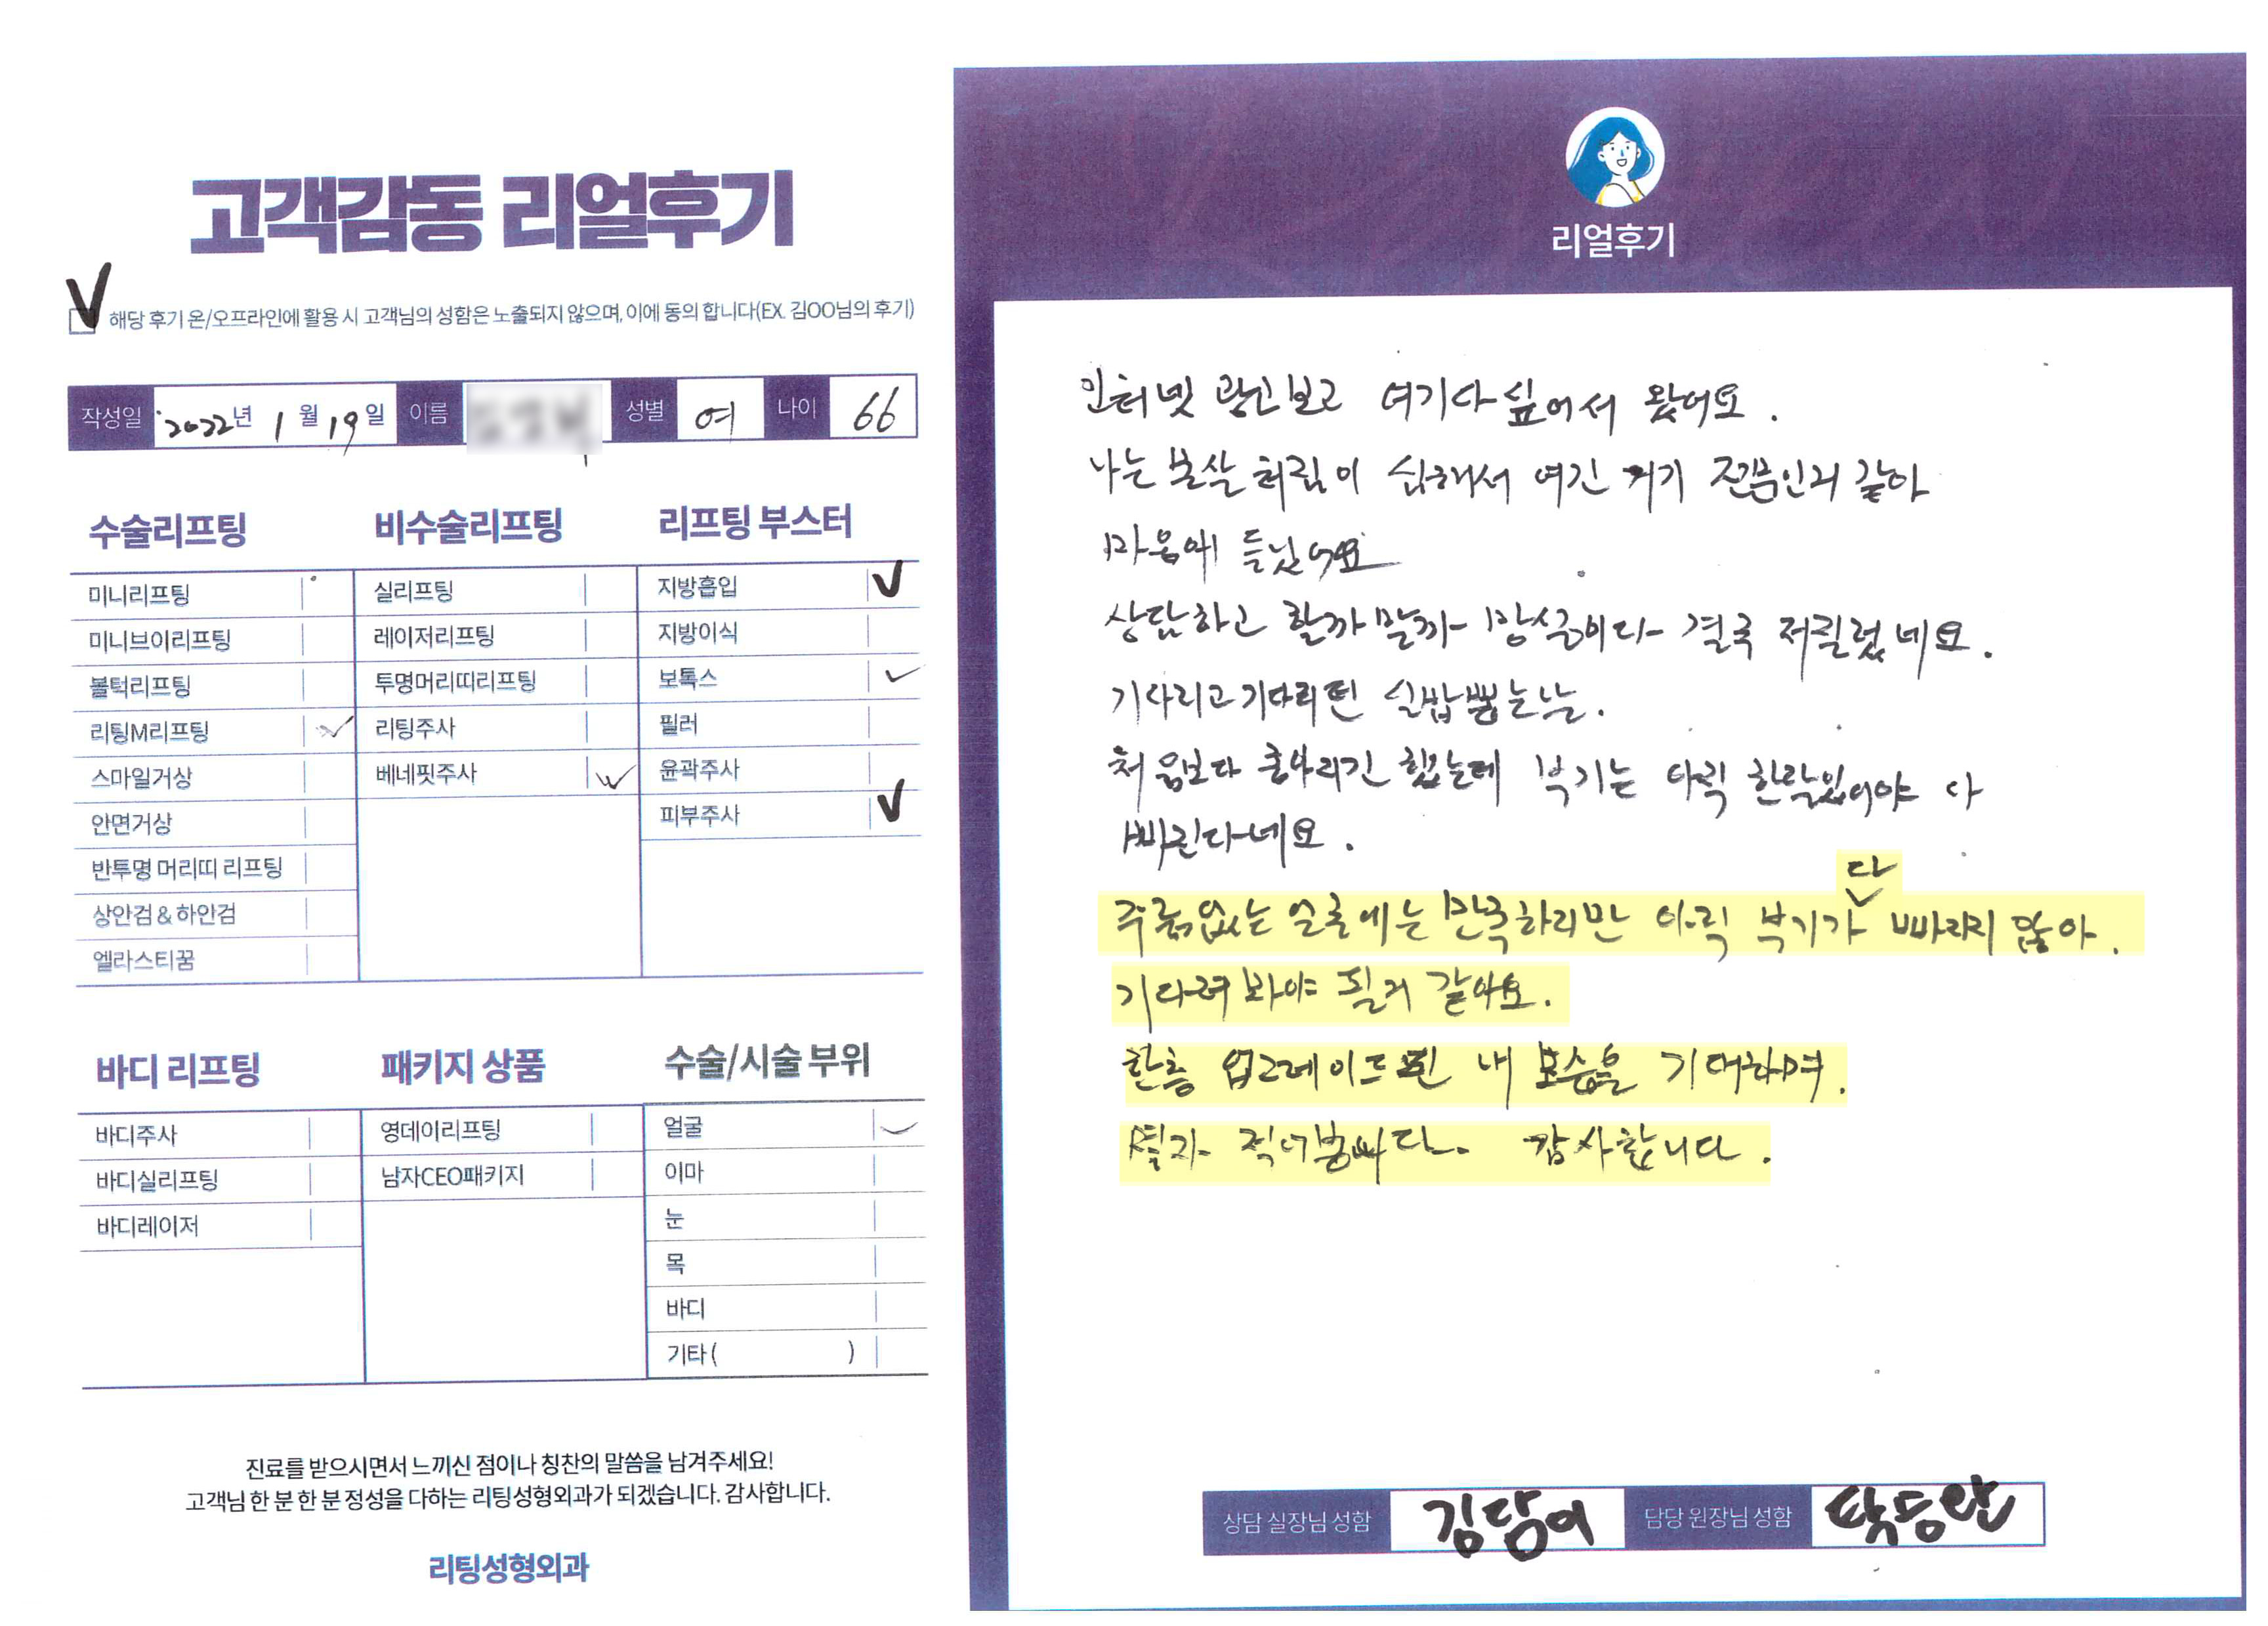 고객감동 리얼후기
V 해당 후기 온/오프라인에 활용 시 고객님의 성함은 노출되지 않으며, 이에 동의 합니다(EX. 김OO님의 후기)
작성일 2022년 1월 19일 이름 성별 여 나이 66
수술리프팅
미니리프팅
미니브이리프팅
볼턱리프팅
리팅M리프팅 ✓
스마일거상
안면거상
반투명 머리띠 리프팅
상안검 & 하안검
엘라스티꿈
비수술리프팅
실리프팅
레이저리프팅
투명머리띠리프팅
리팅주사
베네핏주사 ✓
리프팅 부스터
지방흡입 ✓
지방이식
보톡스 ✓
필러
윤곽주사
피부주사 ✓
바디 리프팅
바디주사
바디실리프팅
바디레이저
패키지 상품
영데이리프팅
남자CEO패키지
수술/시술 부위
얼굴 ✓
이마
눈
목
바디
기타( )
진료를 받으시면서 느끼신 점이나 칭찬의 말씀을 남겨주세요!
고객님 한 분 한 분 정성을 다하는 리팅성형외과가 되겠습니다. 감사합니다.
리팅성형외과
리얼후기
인터넷 광고보고 여기다 싶어서 왔어요.
나는 볼살 처짐이 심해서 여긴 거기 전문인거 같아
마음에 들었어요
상담하고 할까 말까 망설이다 결국 저질렀네요.
기다리고 기다리던 실밥뽑는날.
처음보다 좋아지긴 했는데 부기는 아직 한달있어야 다
빠진다네요.
주름없는 얼굴에는 만족하지만 아직 부기가 다 빠지지 않아.
기다려 봐야 될거 같아요.
한층 업그레이드 된 내 모습을 기대하며.
몇자 적어봅니다. 감사합니다.
상담 실장님 성함 김담이 담당 원장님 성함